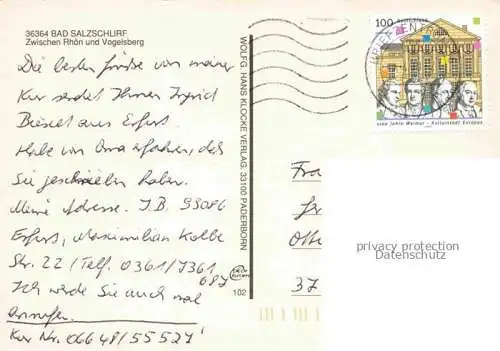 36364 BAD SALZSCHLIRF
Zwischen Rhön und Vogelsberg
Die besten Grüße von meiner
Kur sendet Ihnen Ingrid
aus Erfurt.
Habe von Oma erfahren, daß
Sie geschrieben haben.
Meine Adresse. I.B. 99086
Erfurt, Maximilian Kolbe
Str. 22 / Telf. 0361/7361
087
Ich werde Sie auch mal
anrufen.
Kur Nr. 06648/55521
WOLFG. HANS KLOCKE VERLAG, 33100 PADERBORN
102
100 Deutschland
BRIEFZENTRUM
1100 Jahre Weimar - Kulturstadt Europas
Fra
Otto
37
privacy protection
Datenschutz